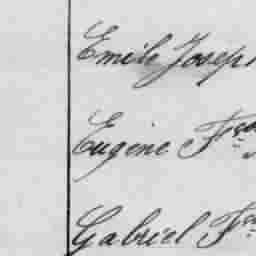 Emile Joseph
Eugène Fr
Gabriel Fr